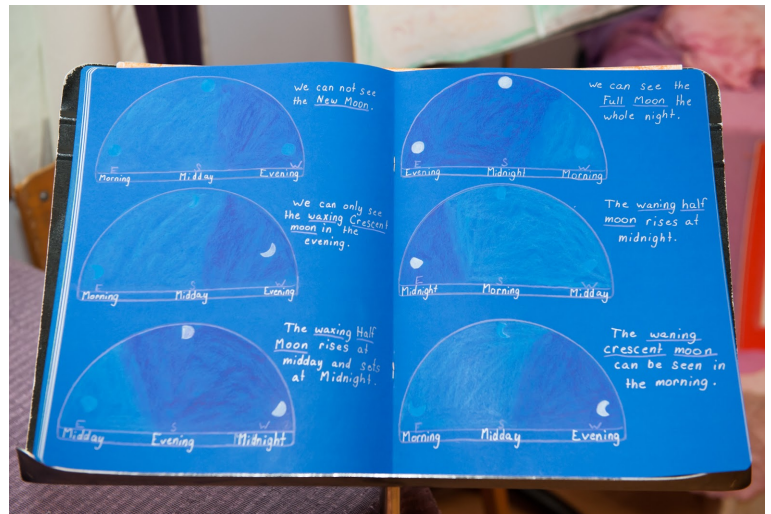 we can not see
the New Moon.
E S W
Morning Midday Evening
we can only see
the waxing Crescent
moon in the
evening.
Morning Midday Evening
The waxing Half
Moon rises at
midday and sets
at Midnight.
E S W
Midday Evening Midnight
we can see the
Full Moon the
whole night.
E S W
Evening Midnight Morning
The waning half
moon rises at
midnight.
E S W
Midnight Morning Midday
The waning
crescent moon
can be seen in
the morning.
E S W
Morning Midday Evening